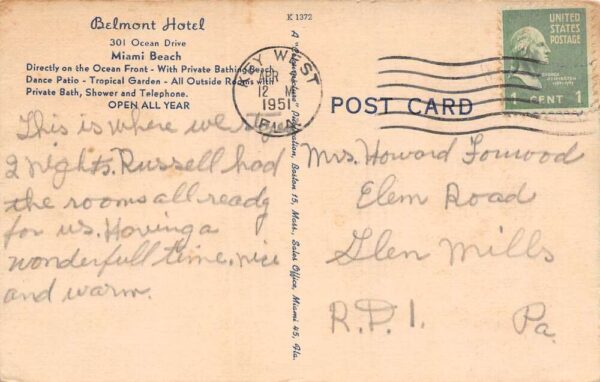 K 1372
Belmont Hotel
301 Ocean Drive
Miami Beach
Directly on the Ocean Front - With Private Bathing Beach
Dance Patio - Tropical Garden - All Outside Rooms
Private Bath, Shower and Telephone.
OPEN ALL YEAR
This is where we
2 nights. Russell had
the rooms all ready
for us. Having a
wonderfull time. nice
and warm.
A Publication, Boston 15, Mass. Sales Office, Miami 45, Fla.
KEY WEST
12 M
1951
FLA.
POST CARD
UNITED
STATES
POSTAGE
1 CENT 1
Mrs. Howard
Elem Road
Glen Mills
R.D.1. Pa.